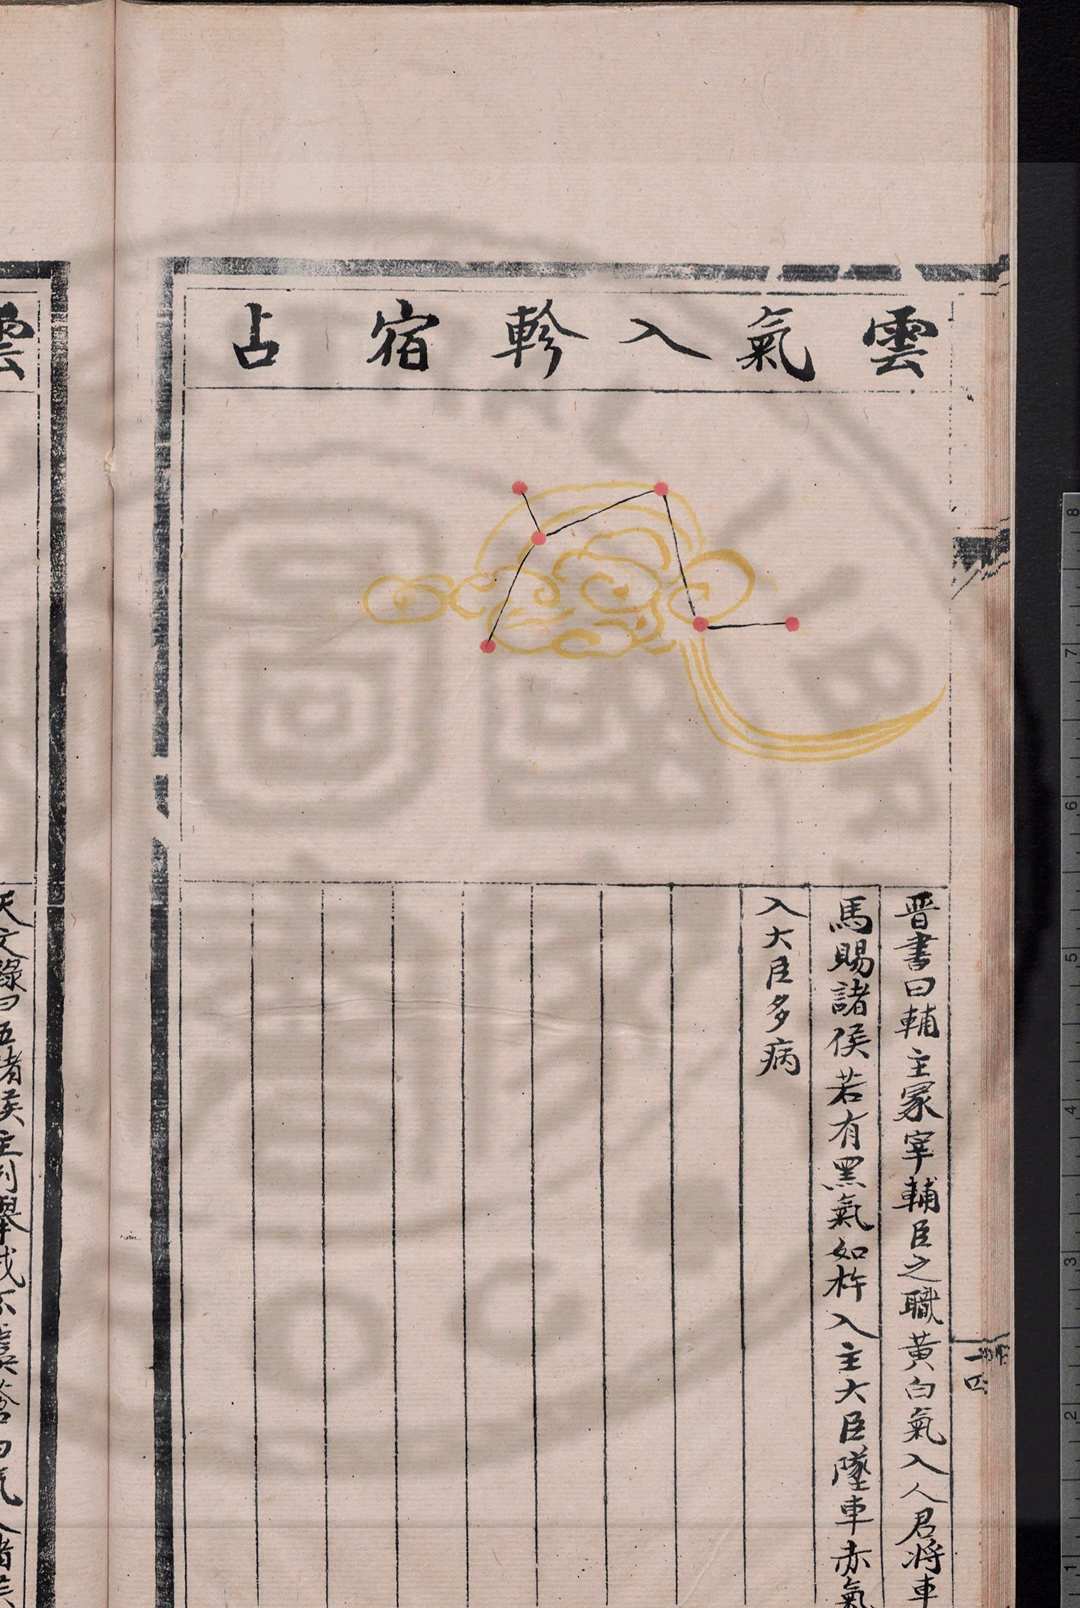 雲氣入軫宿占
晋書曰輔主冢宰輔臣之職黃白氣入人君將車
馬賜諸侯若有黑氣如杵入主大臣墜車赤氣
入大臣多病
一四
雲
天文錄曰五諸侯主刑舉戒不虞蒼白氣入諸侯
8
7
6
5
4
3
2
1